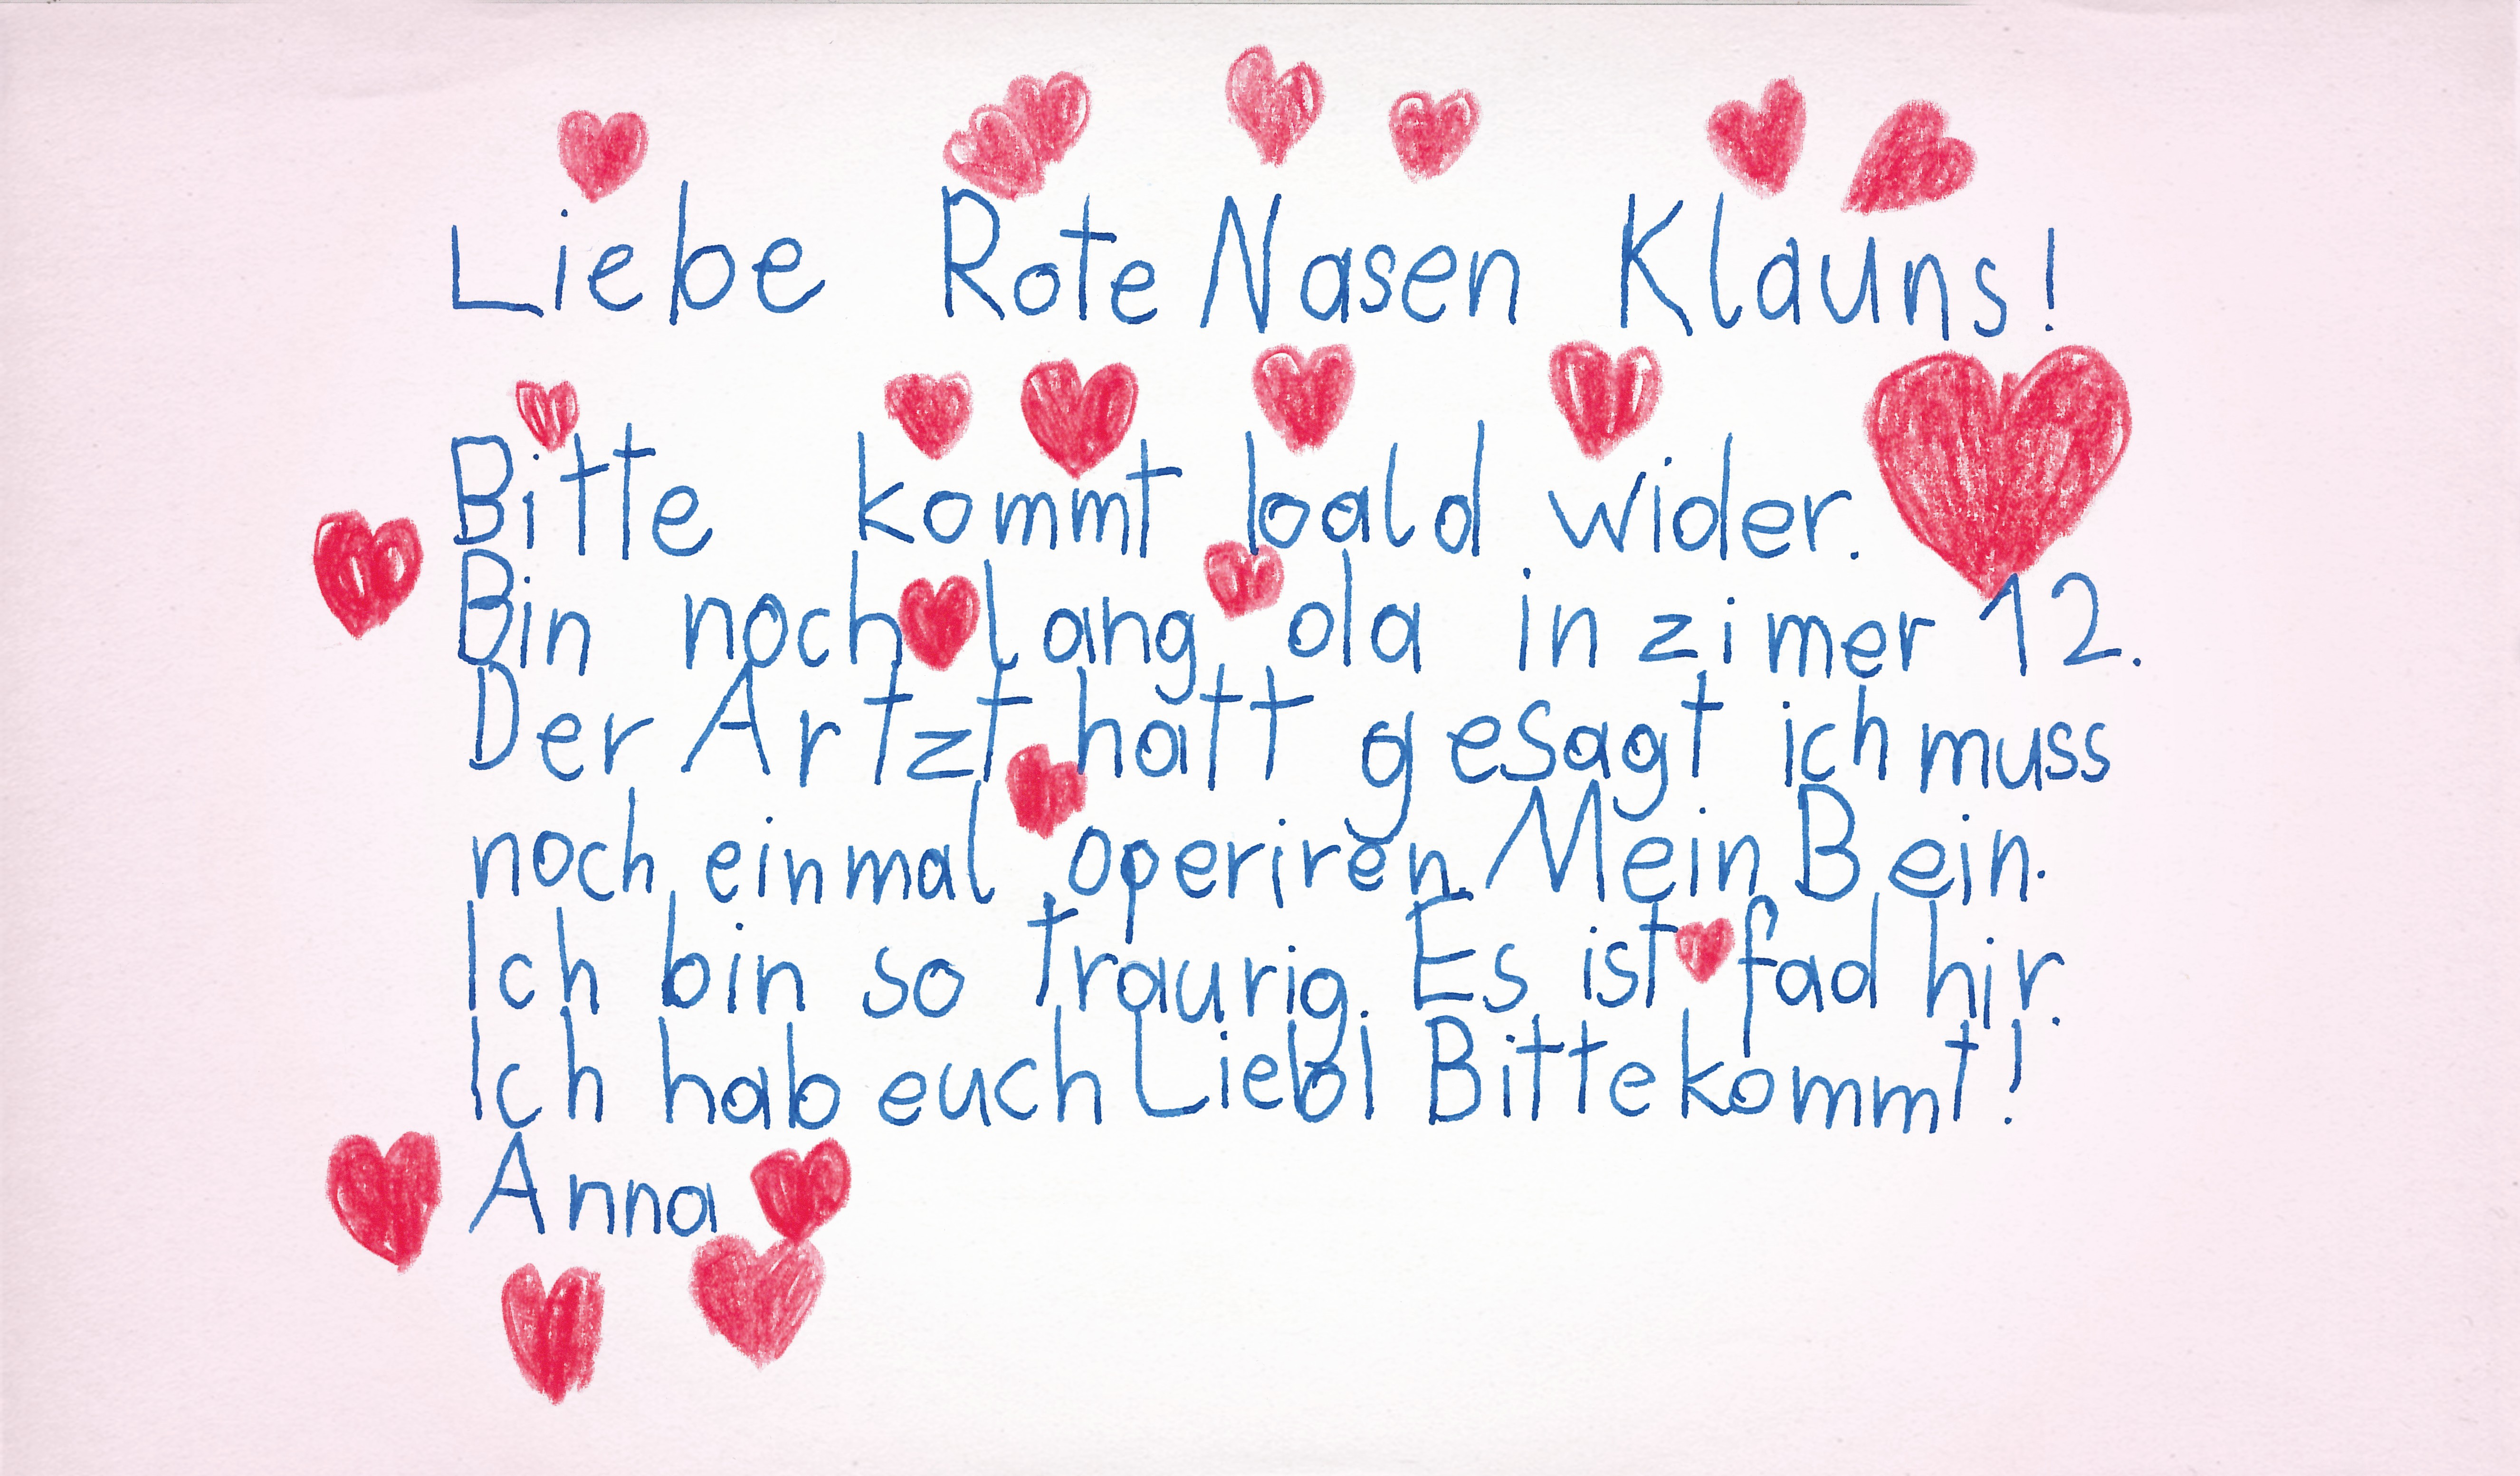 Liebe Rote Nasen Klauns!
Bitte kommt bald wider.
Bin noch lang da in zimer 12.
Der Artzt hatt gesagt ich muss
noch einmal operiren. Mein Bein.
Ich bin so traurig. Es ist fad hir.
Ich hab euch Lieb! Bitte kommt!
Anna